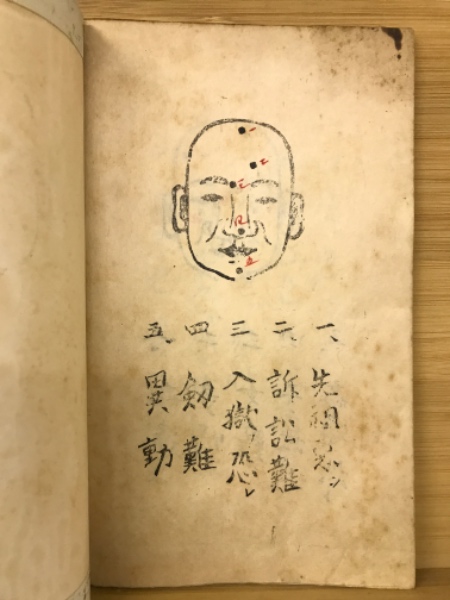 一、先祖
二、訴訟難
三 入獄ノ恐レ
四 剱難
五、異動
一
二
三
四
五